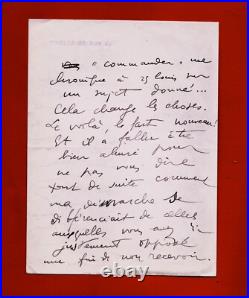 "commander" une
chronique à 25 louis sur
un sujet donné...
Cela change les choses.
Le voilà, le fait nouveau!
Et il a fallu être
bien ahuri pour
ne pas vous dire
tout de suite comment
ma démarche se
différenciait de celles
auxquelles vous avez
justement opposé
une fin de non recevoir.